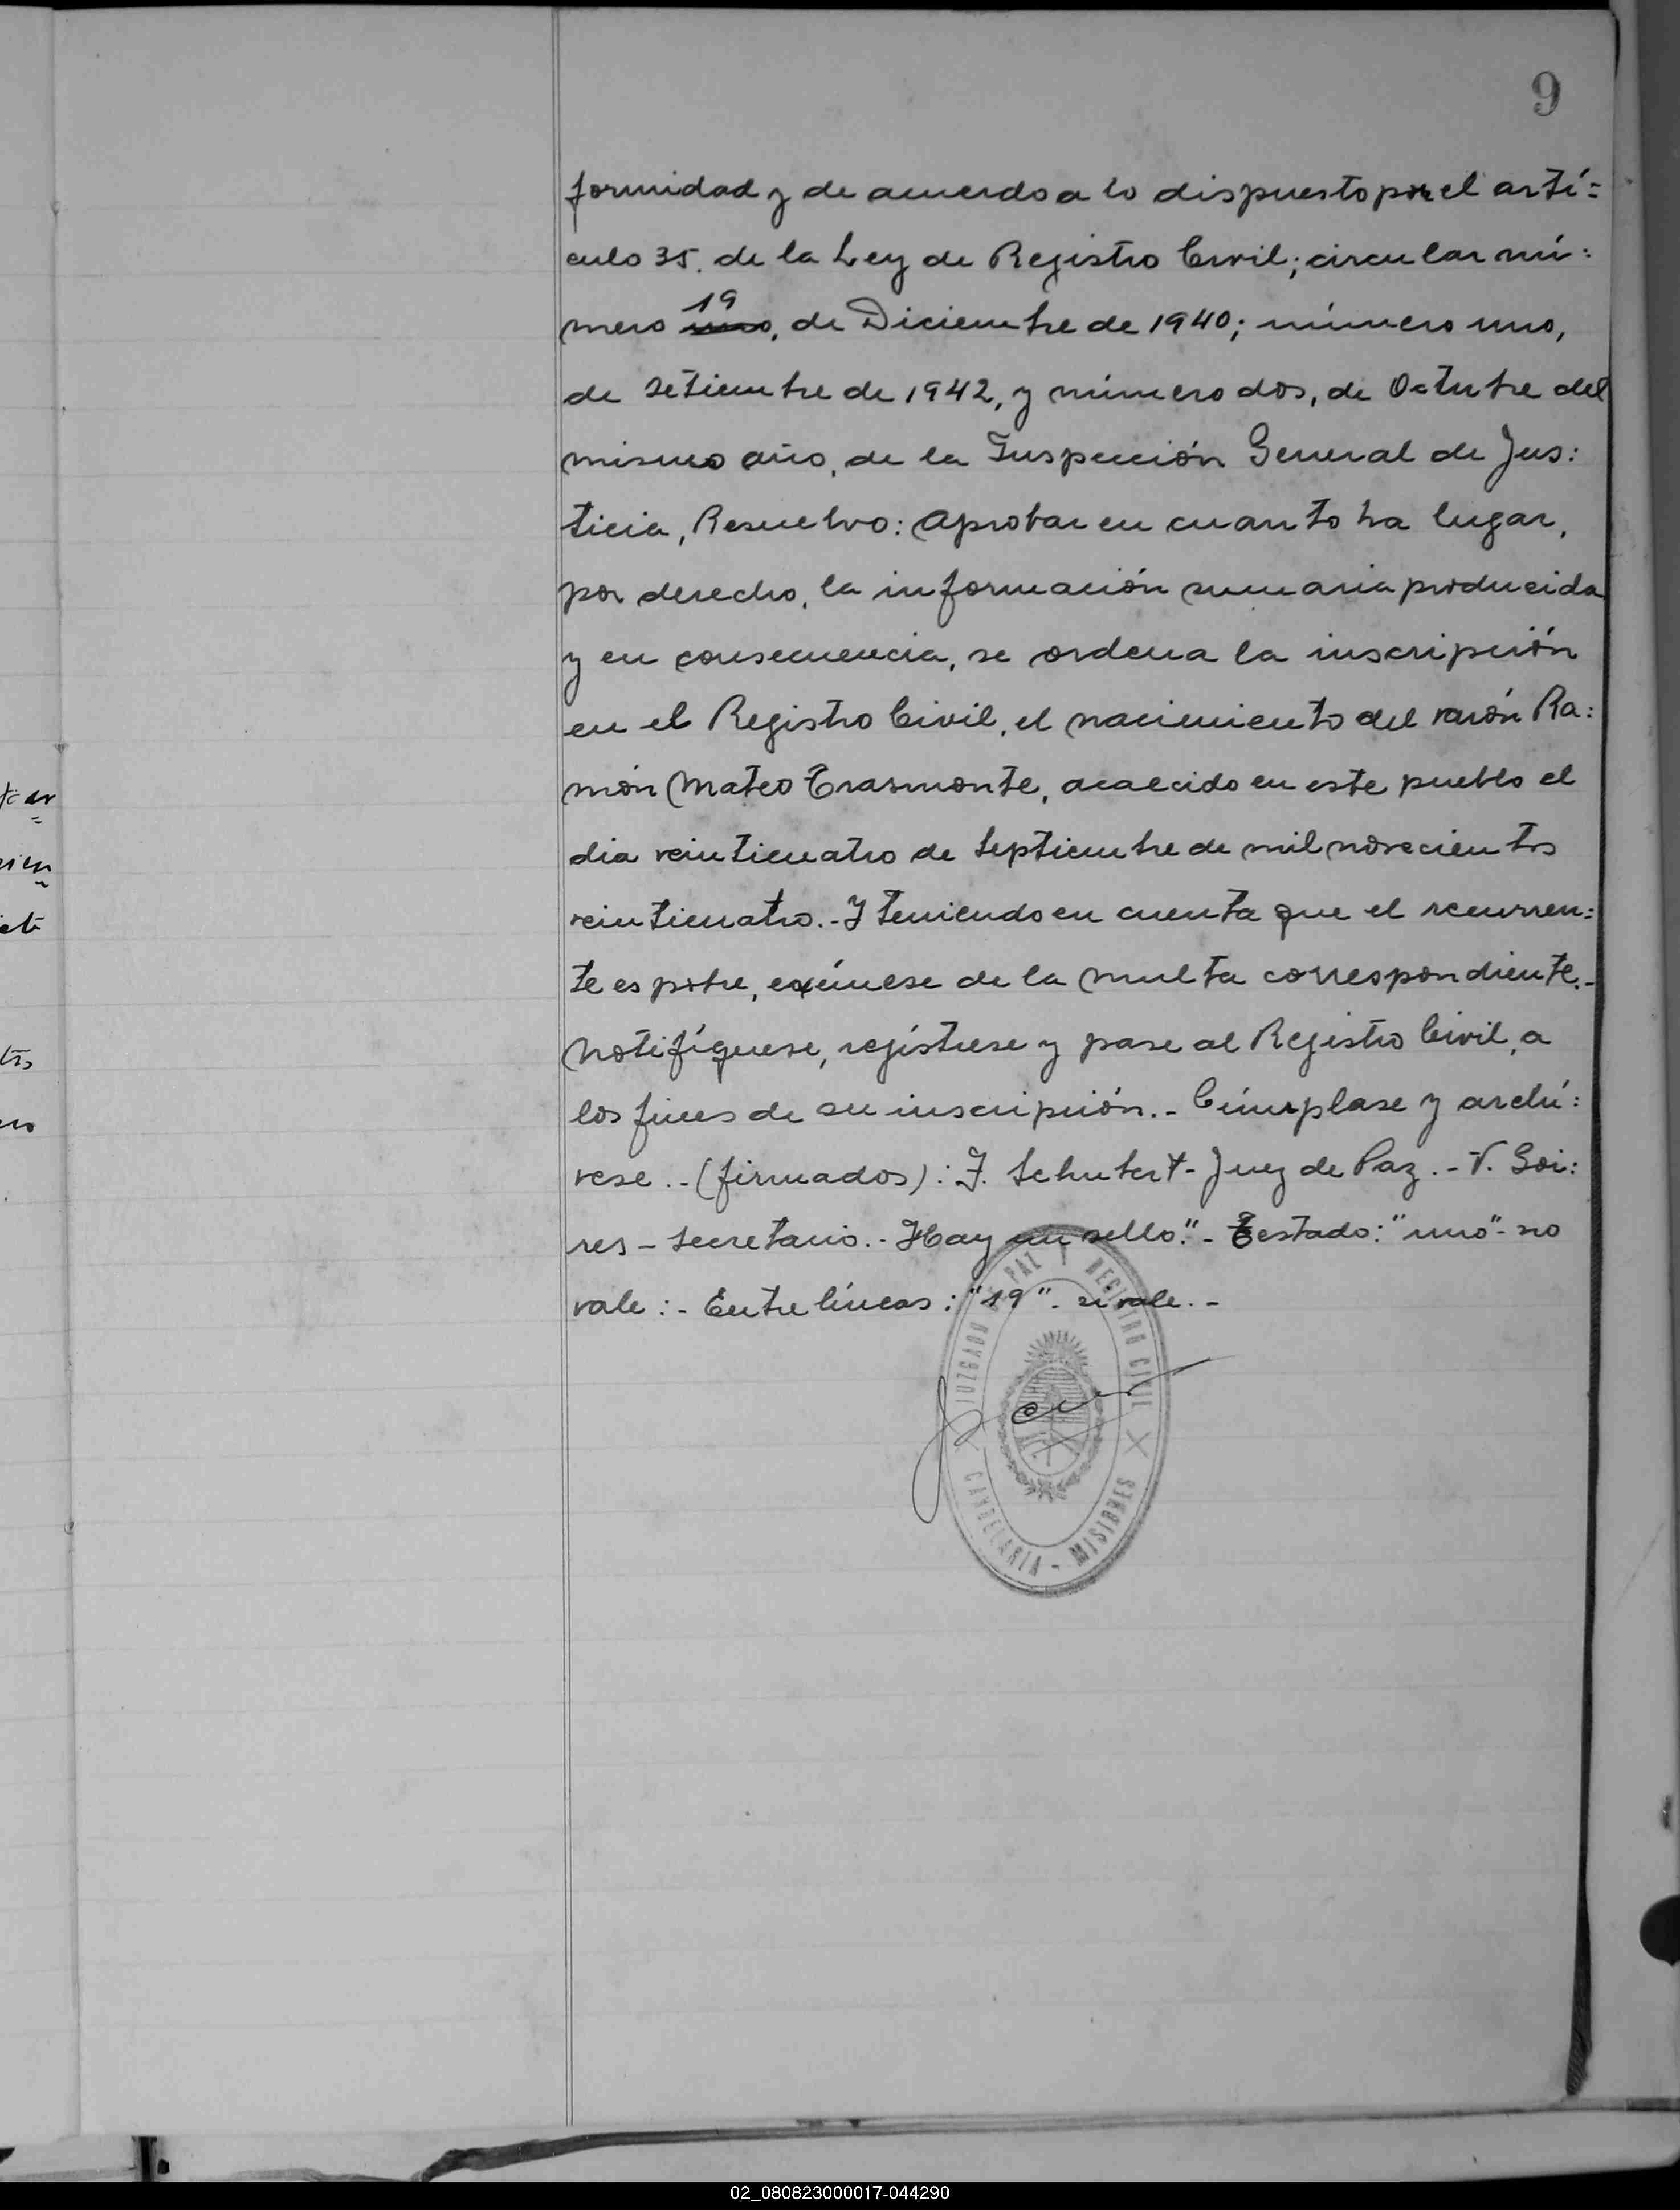 9
formidad y de acuerdo a lo dispuesto por el artí=
culo 35. de la Ley de Registro Civil; circular nú:
19
mero uno, de Diciembre de 1940; número uno,
de Setiembre de 1942, y número dos, de Octubre del
mismo año, de la Inspección General de Jus:
ticia, Resuelvo: Aprobar en cuanto ha lugar,
por derecho, la información sumaria producida
y en consecuencia, se ordena la inscripción
en el Registro Civil, el nacimiento del varón Ra:
món Mateo Trasmonte, acaecido en este pueblo el
dia veinticuatro de Septiembre de mil novecientos
veinticuatro.- Y teniendo en cuenta que el recurren:
te es pobre, exímese de la multa correspondiente.-
Notifíquese, regístrese y pase al Registro Civil, a
los fines de su inscripción.- Cúmplase y archí:
vese.- (firmados): J. Schubert - Juez de Paz.- V. Goi:
res - Secretario.- Hay un sello."- Testado: "uno"- no
vale:- Entre líneas: "19". si vale.-
JUZGADO PAZ REGISTRO CIVIL
CANDELARIA - MISIONES
02_080823000017-044290